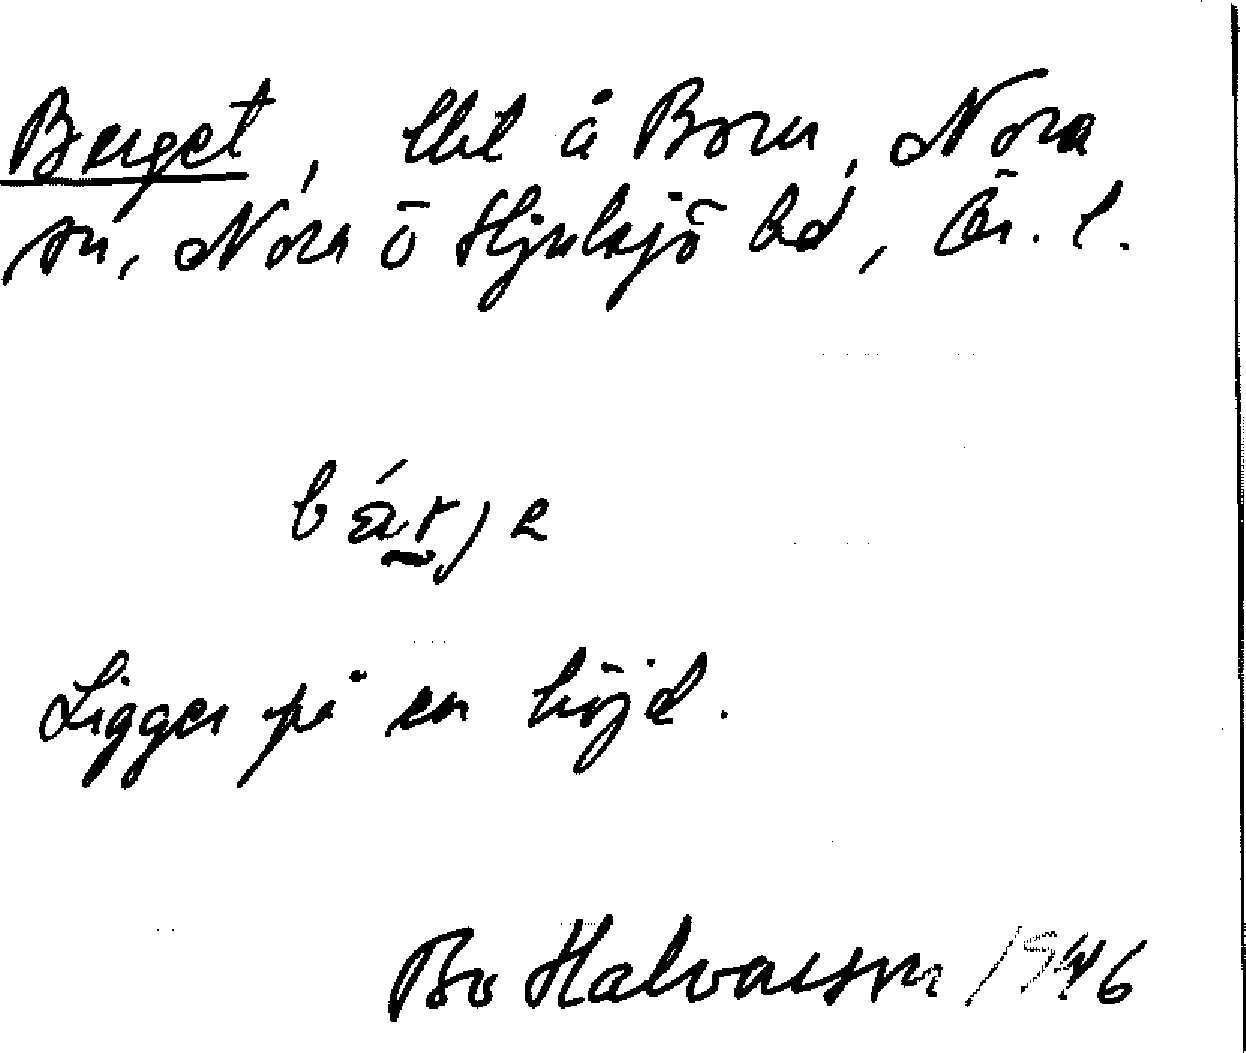 Berget, lht å Born, Nora
sn, Nora o Hjulsjö bd, Ör. l.
bǽrje
Ligger på en höjd.
Bo Halvarson 1946